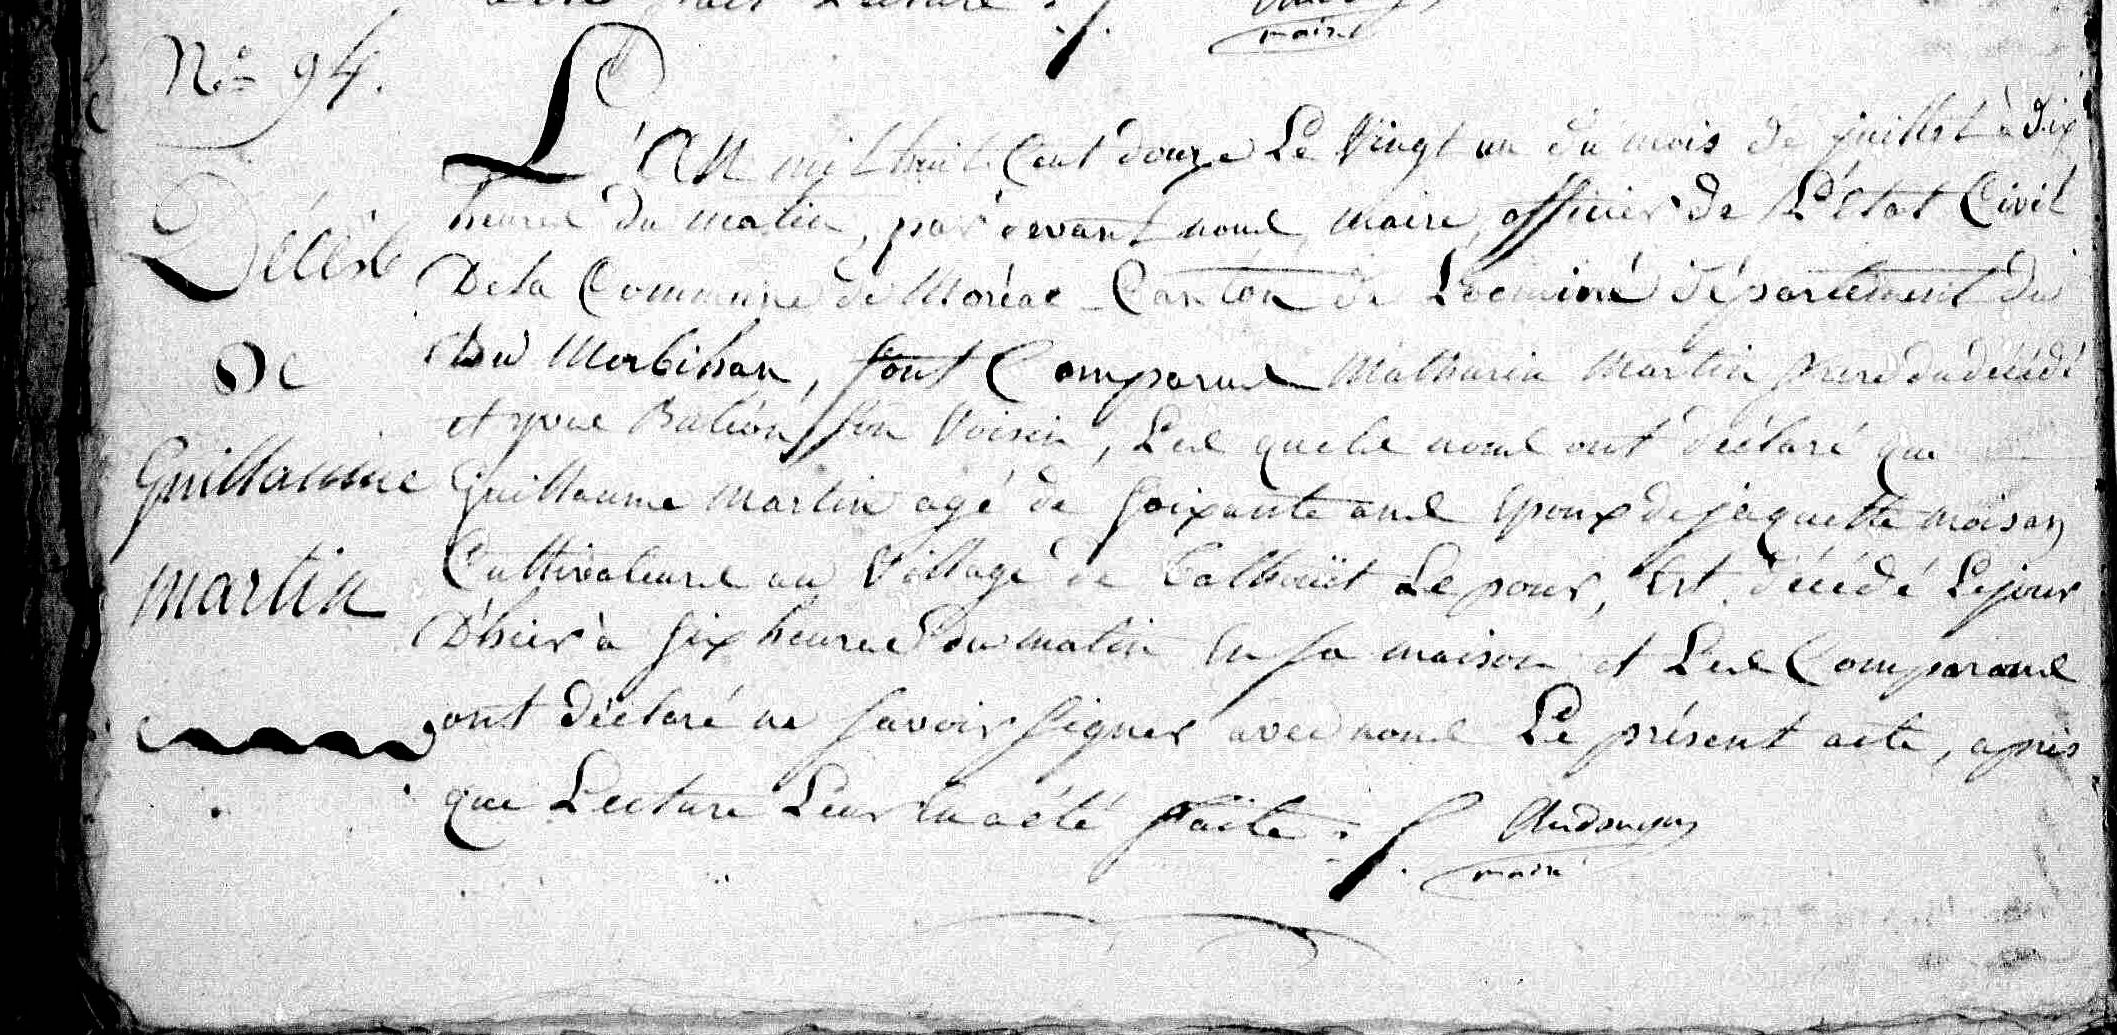 acte, après Lecture
maire
N.º 94.
Décès
de
Guillaume
martin
L'An mil huit Cent douze Le Vingt un du mois de juillet à dix
heures du matin, par devant nous, maire, officier de L'état Civil
De la Commune de Moréac Canton de Locminé département du
du Morbihan, sont Comparus Mathurin Martin frere du décédé
et yves son Voisin, Les quels nous ont déclaré que
Guillaume martin agé de soixante ans Epoux de jaquette moisan
Cultivateurs au Village de Le pour, Est décédé Le jour
D'hier à six heures du matin En sa maison et Les Comparans
ont déclaré ne savoir signer avec nous Le présent acte, après
que Lecture Leur En a été faite ./.
maire